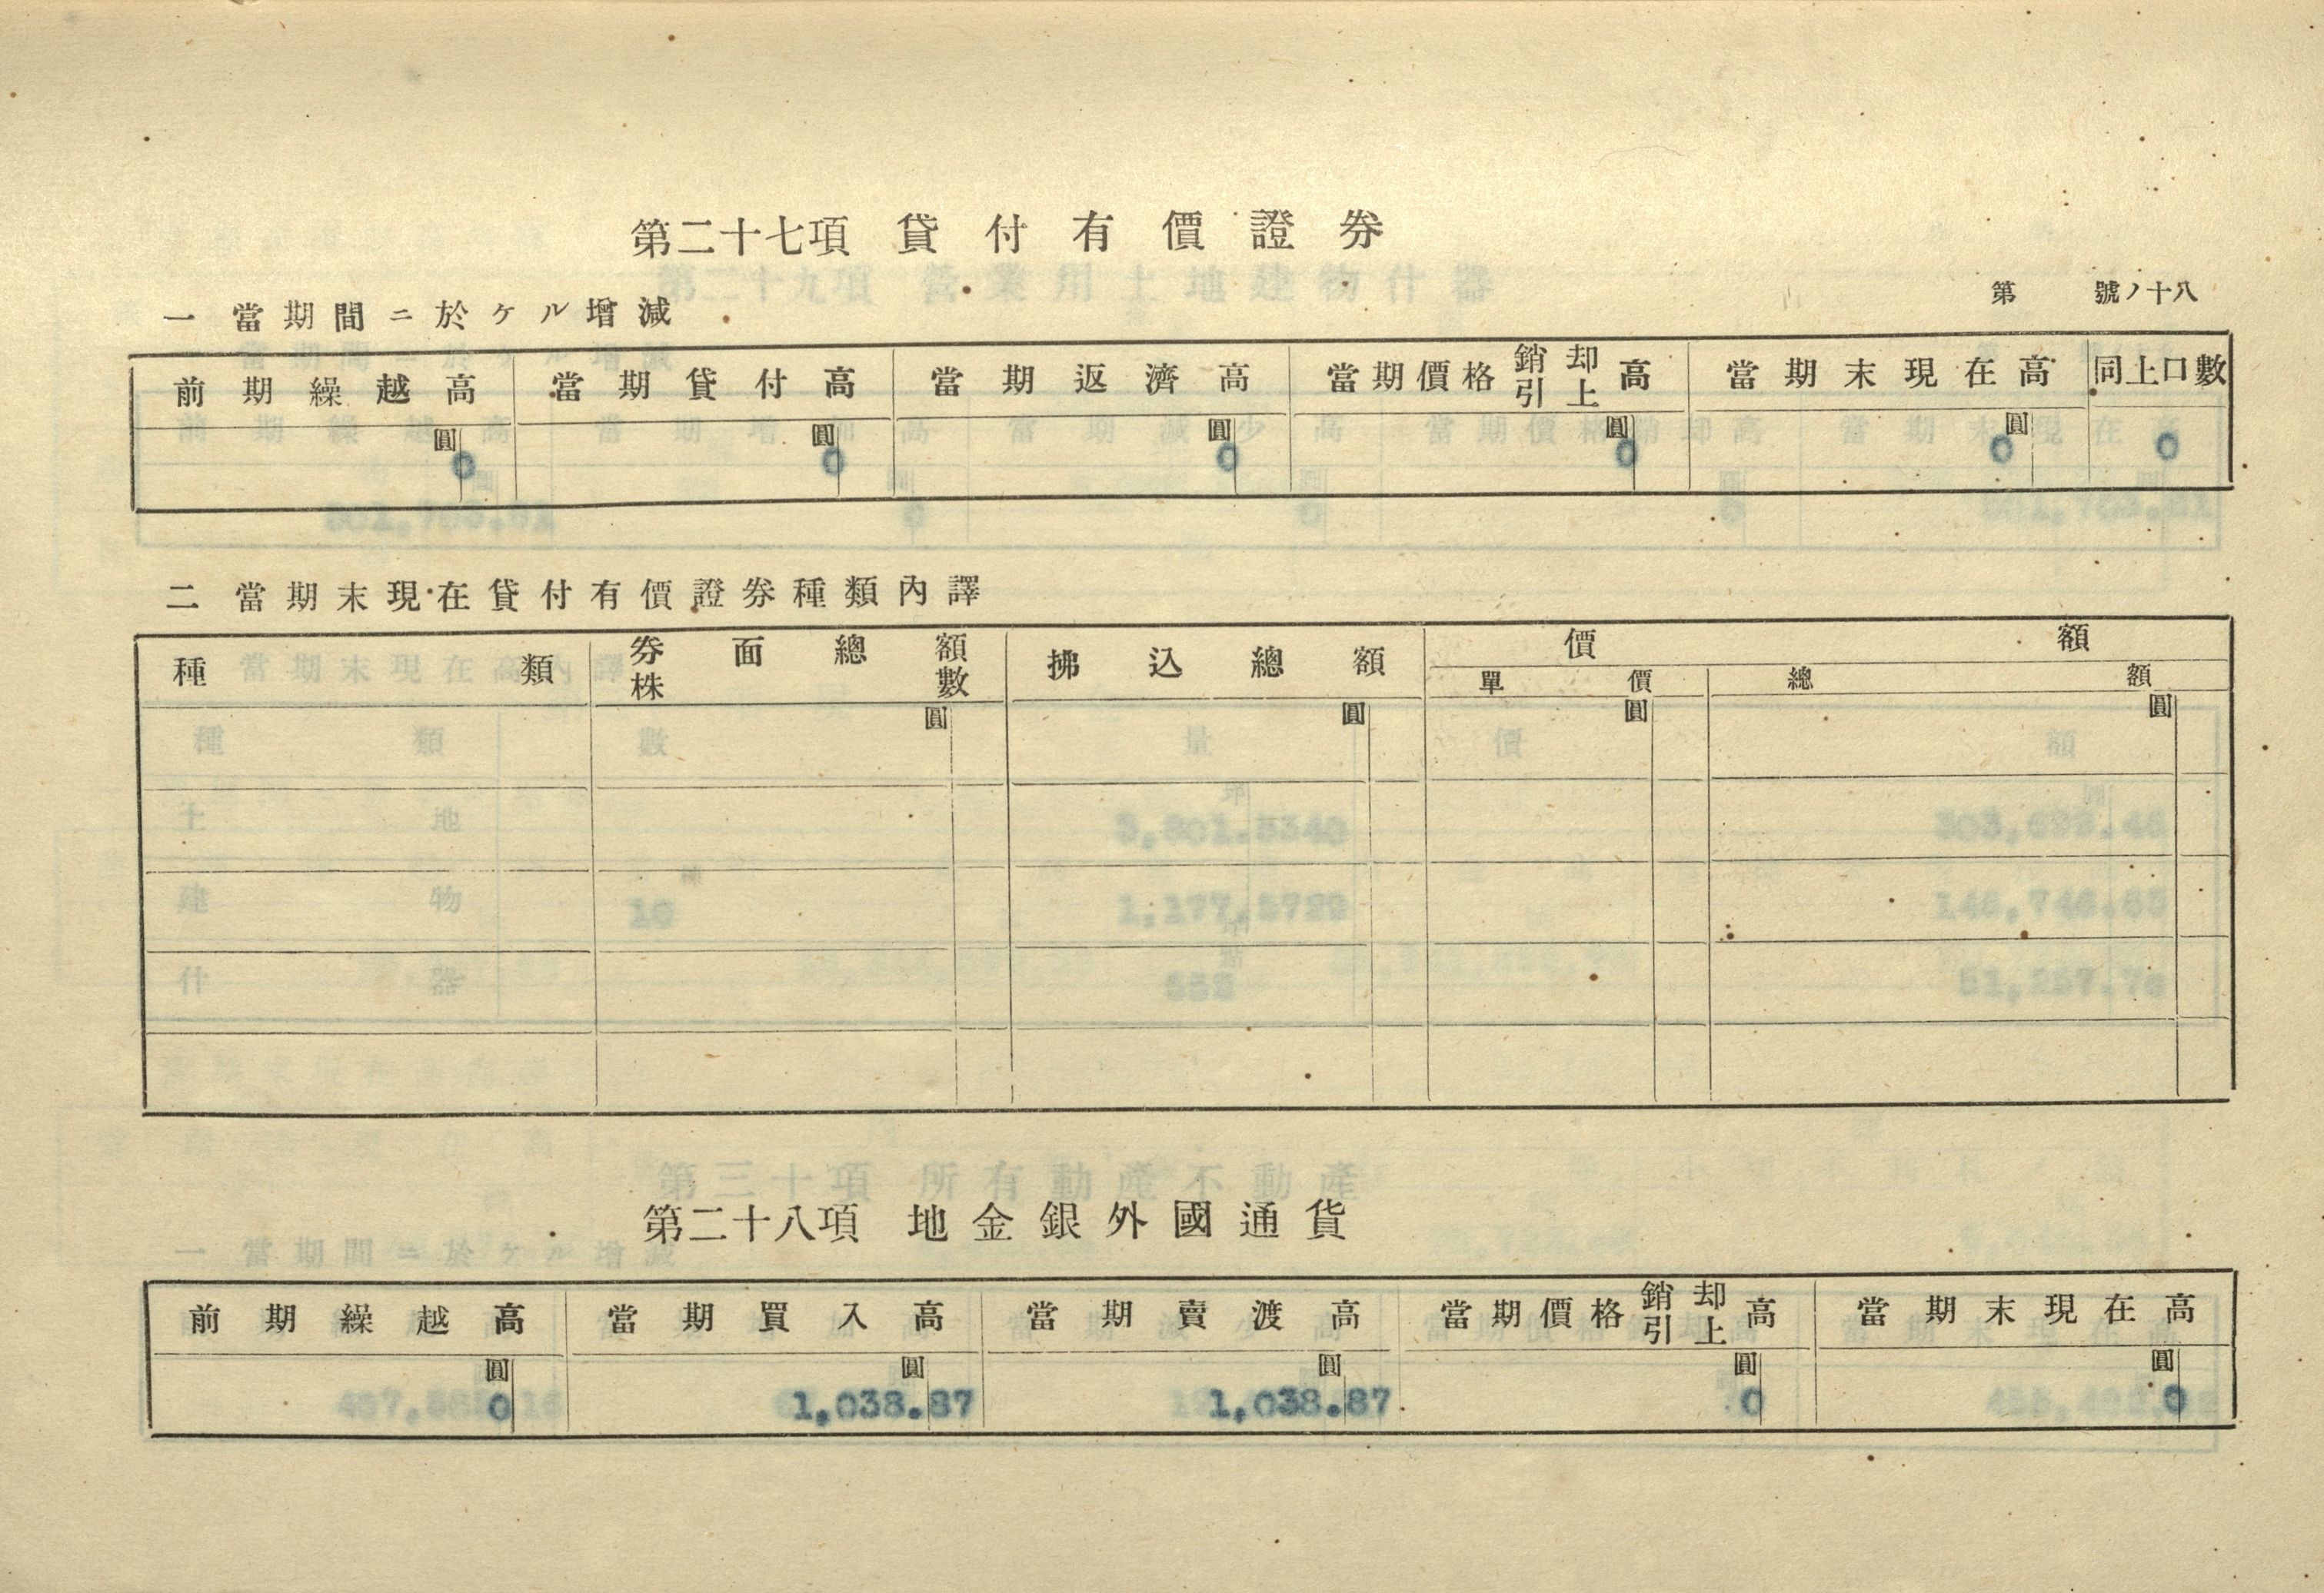 第二十七項 貸付有價證券
第 號ノ十八
一 當期間ニ於ケル增減
前期繰越高 當期貸付高 當期返濟高 當期價格銷却引上高 當期末現在高 同上口數
圓 圓 圓 圓 圓
0 0 0 0 0 0
二 當期末現在貸付有價證券種類內譯
種類 券面總額株數 拂込總額 價額
單價 總額
圓 圓 圓 圓
第二十八項 地金銀外國通貨
前期繰越高 當期買入高 當期賣渡高 當期價格銷却引上高 當期末現在高
圓 圓 圓 圓 圓
0 1,038.87 1,038.87 0 0